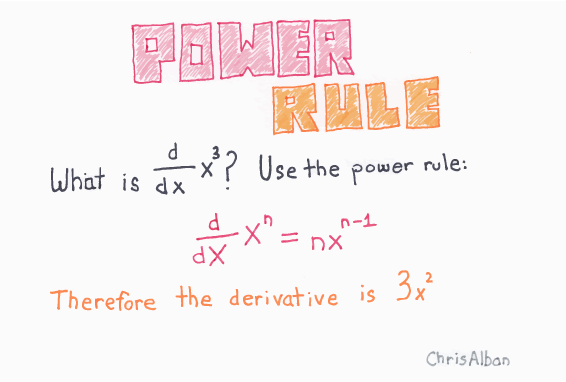 POWER
RULE
What is d/dx x³? Use the power rule:
d/dx xⁿ = nxⁿ⁻¹
Therefore the derivative is 3x²
ChrisAlban